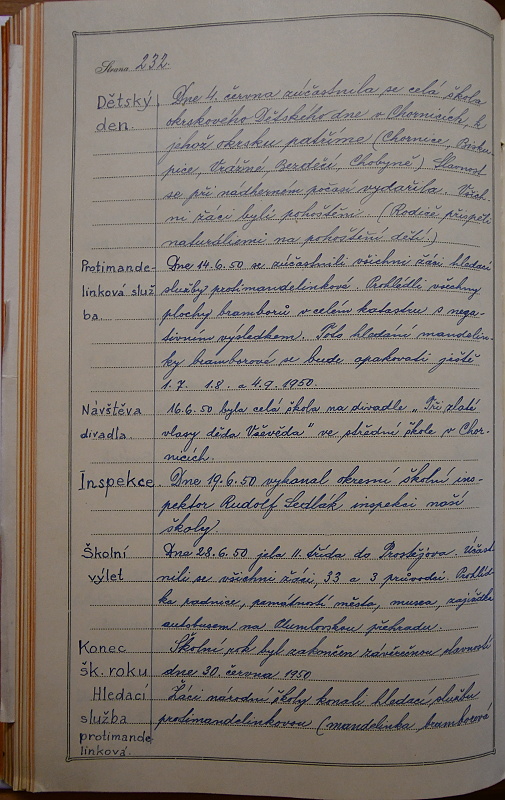 Strana 232.
Dětský den.
Dne 4. června zúčastnila se celá škola
okrskového Dětského dne v Chornicích, k
jehož okrsku patříme (Chornice, Bisku-
pice, Vrážné, Bezděčí, Chobyně.) Slavnost
se při nádherném počasí vydařila. Všich-
ni žáci byli pohoštěni. (Rodiče přispěli
naturáliemi na pohoštění dětí.)
Protimande-
linková služ
ba.
Dne 14.6.50 se zúčastnili všichni žáci hledací
služby protimandelinkové. Prohlédli všechny
plochy bramborů v celém katastru s nega-
tivním výsledkem. Toto hledání mandelin-
ky bramborové se bude opakovati ještě
1.7. 1.8. a 4.9. 1950.
Návštěva
divadla.
16.6.50 byla celá škola na divadle „Tři zlaté
vlasy děda Vševěda" ve střední škole v Chor-
nicích.
Inspekce
Dne 19.6.50 vykonal okresní školní ins-
pektor Rudolf Sedlák inspekci naší
školy.
Školní
výlet
Dne 28.6.50 jela II. třída do Prostějova. Účast-
nili se všichni žáci, 33 a 3 průvodci. Prohlíd-
ka radnice, památností města, musea, zajížďka
autobusem na Plumlovskou přehradu.
Konec
šk. roku
Školní rok byl zakončen závěrečnou slavností
dne 30. června 1950
Hledací
služba
protimande-
linková.
Žáci národní školy konali hledací službu
protimandelinkovou (mandelinka bramborové